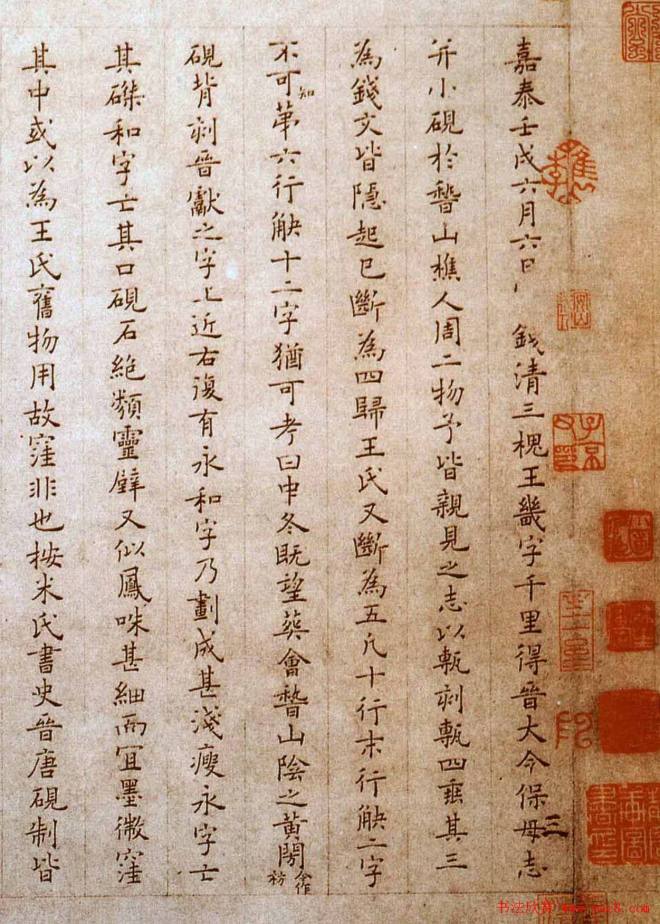 嘉泰壬戌六月六日錢清三槐王畿字千里得晉大令保母志
并小硯於稽山樵人周二物予皆親見之志以甎刻甎四垂其三
為錢文皆隱起已斷為四歸王氏又斷為五凡十行末行缺二字
不可知第六行缺十二字猶可考曰中冬既望葬會稽山陰之黃閍今作祊
硯背刻晉獻之字上近右復有永和字乃劃成甚淺瘦永字亡
其磔和字亡其口硯石絕類靈壁又似鳳咮甚細而宜墨微窪
其中或以為王氏舊物用故窪非也按米氏書史晉唐硯制皆
三
子京父印
书法欣赏